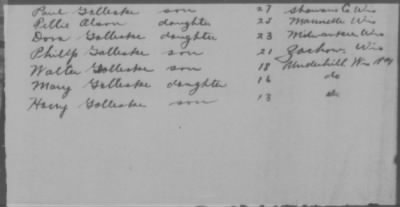 Paul Golleske son 27 Shawano Co Wis
Lillie Olson daughter 25 Marinette Wis
Dora Golleske daughter 23 Milwaukee Wis
Philip Golleske son 21 Zachow Wis
Walter Golleske son 18 Underhill Wis
Mary Golleske daughter 16 do
Harry Golleske son 13 do